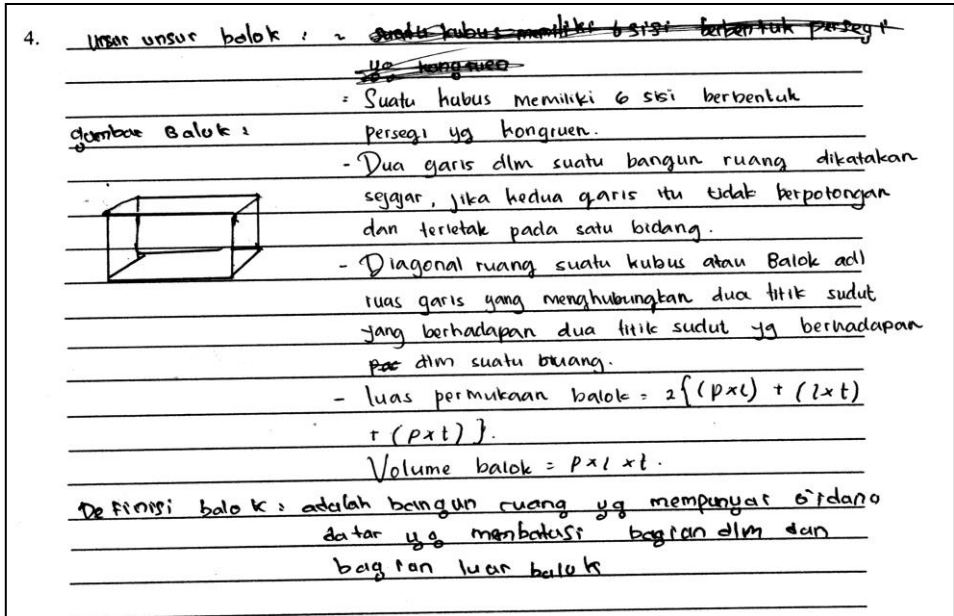 4. unsur unsur balok : - suatu kubus memiliki 6 sisi berbentuk persegi
yg kongruen
= Suatu kubus memiliki 6 sisi berbentuk
gambar Balok : persegi yg kongruen.
- Dua garis dlm suatu bangun ruang dikatakan
sejajar, jika kedua garis itu tidak berpotongan
dan terletak pada satu bidang.
- Diagonal ruang suatu kubus atau Balok adl
ruas garis yang menghubungkan dua titik sudut
yang berhadapan dua titik sudut yg berhadapan
dlm suatu ruang.
- luas permukaan balok = 2{(pxl) + (lxt)
+ (pxt)}.
Volume balok = pxlxt.
Definisi balok : adalah bangun ruang yg mempunyai bidang
datar yg membatasi bagian dlm dan
bagian luar balok